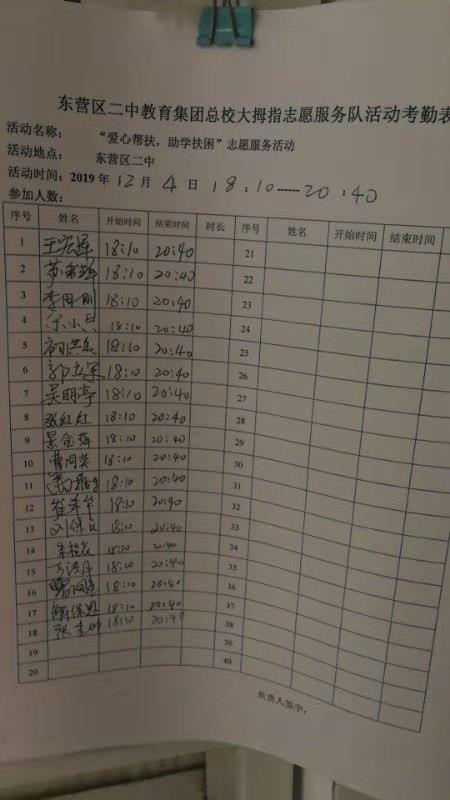 东营区二中教育集团总校大拇指志愿服务队活动考勤表
活动名称： “爱心帮扶，助学扶困”志愿服务活动
活动地点： 东营区二中
活动时间：2019年12月4日 18:10——20:40
参加人数：
序号 姓名 开始时间 结束时间 时长 序号 姓名 开始时间 结束时间
1 18:10 20:40 21
2 18:10 20:40 22
3 18:10 20:40 23
4 18:10 20:40 24
5 18:10 20:40 25
6 18:10 20:40 26
7 吴明亭 18:10 20:40 27
8 张红红 18:10 20:40 28
9 景金萍 18:10 20:40 29
10 18:10 20:40 30
11 18:10 20:40 31
12 18:10 20:40 32
13 18:10 20:40 33
14 18:10 20:40 34
15 18:10 20:40 35
16 18:10 20:40 36
17 18:10 20:40 37
18 18:10 20:40 38
19 39
20 40
负责人签字：